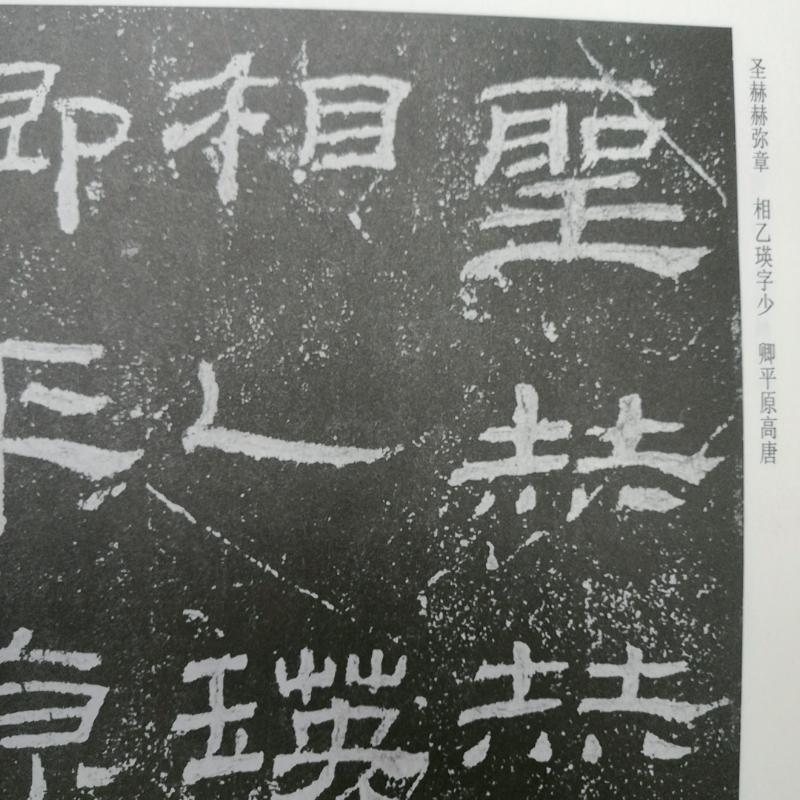 圣赫赫弥章 相乙瑛字少 卿平原高唐
聖赫赫
相乙瑛
卿平原